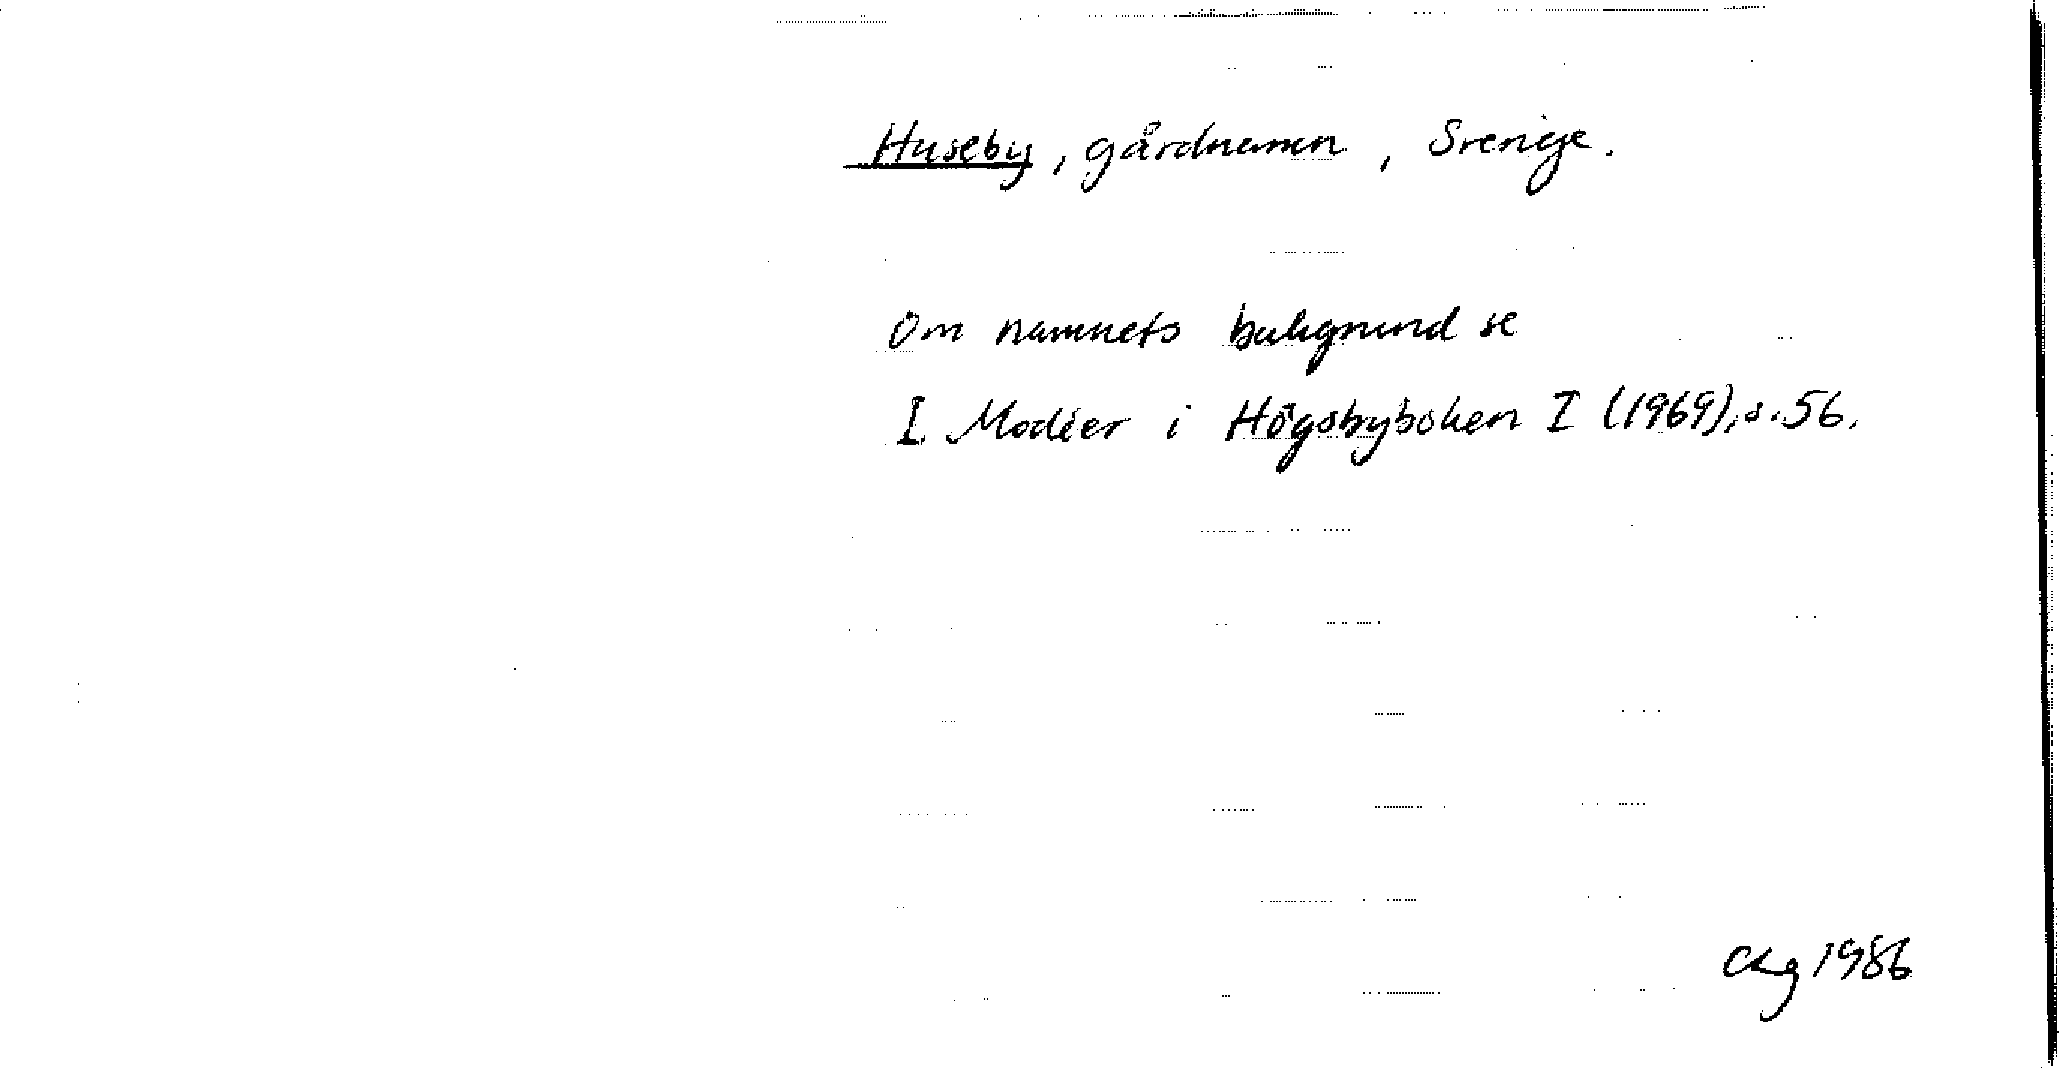 Huseby, gårdnamn, Sverige.
Om namnets bakgrund se
I. Modéer i Högsbyboken I (1969), s. 56.
1986